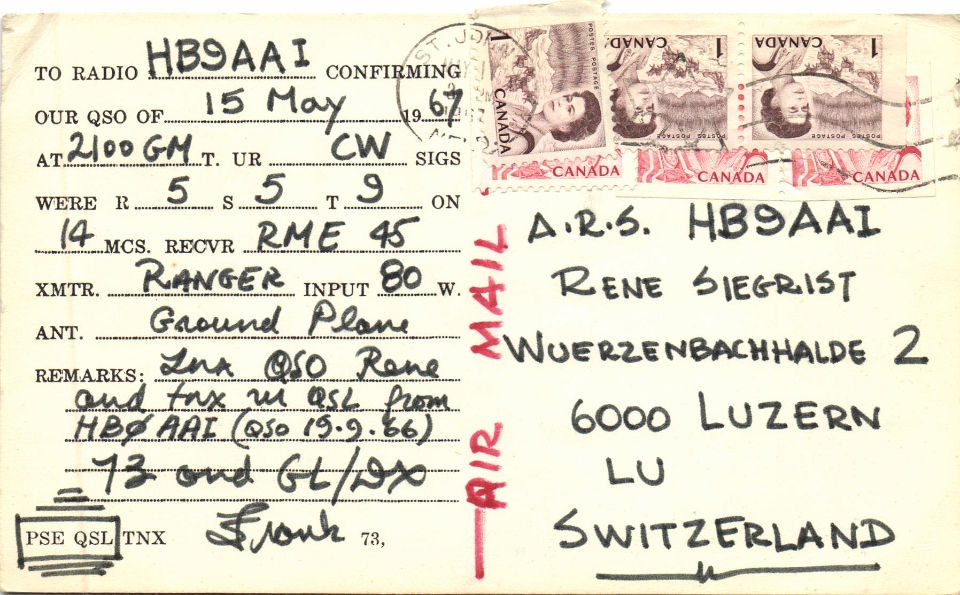 TO RADIO HB9AAI CONFIRMING
OUR QSO OF 15 May 1967
AT 2100 GM T. UR CW SIGS
WERE R 5 S 5 T 9 ON
14 MCS. RECVR RME 45
XMTR. RANGER INPUT 80 W.
ANT. Ground Plane
REMARKS: Tnx QSO Rene
and tnx ur QSL from
HBØAAI (QSO 19.9.66)
73 and GL/DX
PSE QSL TNX Frank 73,
ST. JOHN'S
1 CANADA POSTES POSTAGE
1 CANADA POSTES POSTAGE
1 CANADA POSTES POSTAGE
CANADA
CANADA
CANADA
AIR MAIL
A.R.S. HB9AAI
RENE SIEGRIST
WUERZENBACHHALDE 2
6000 LUZERN
LU
SWITZERLAND